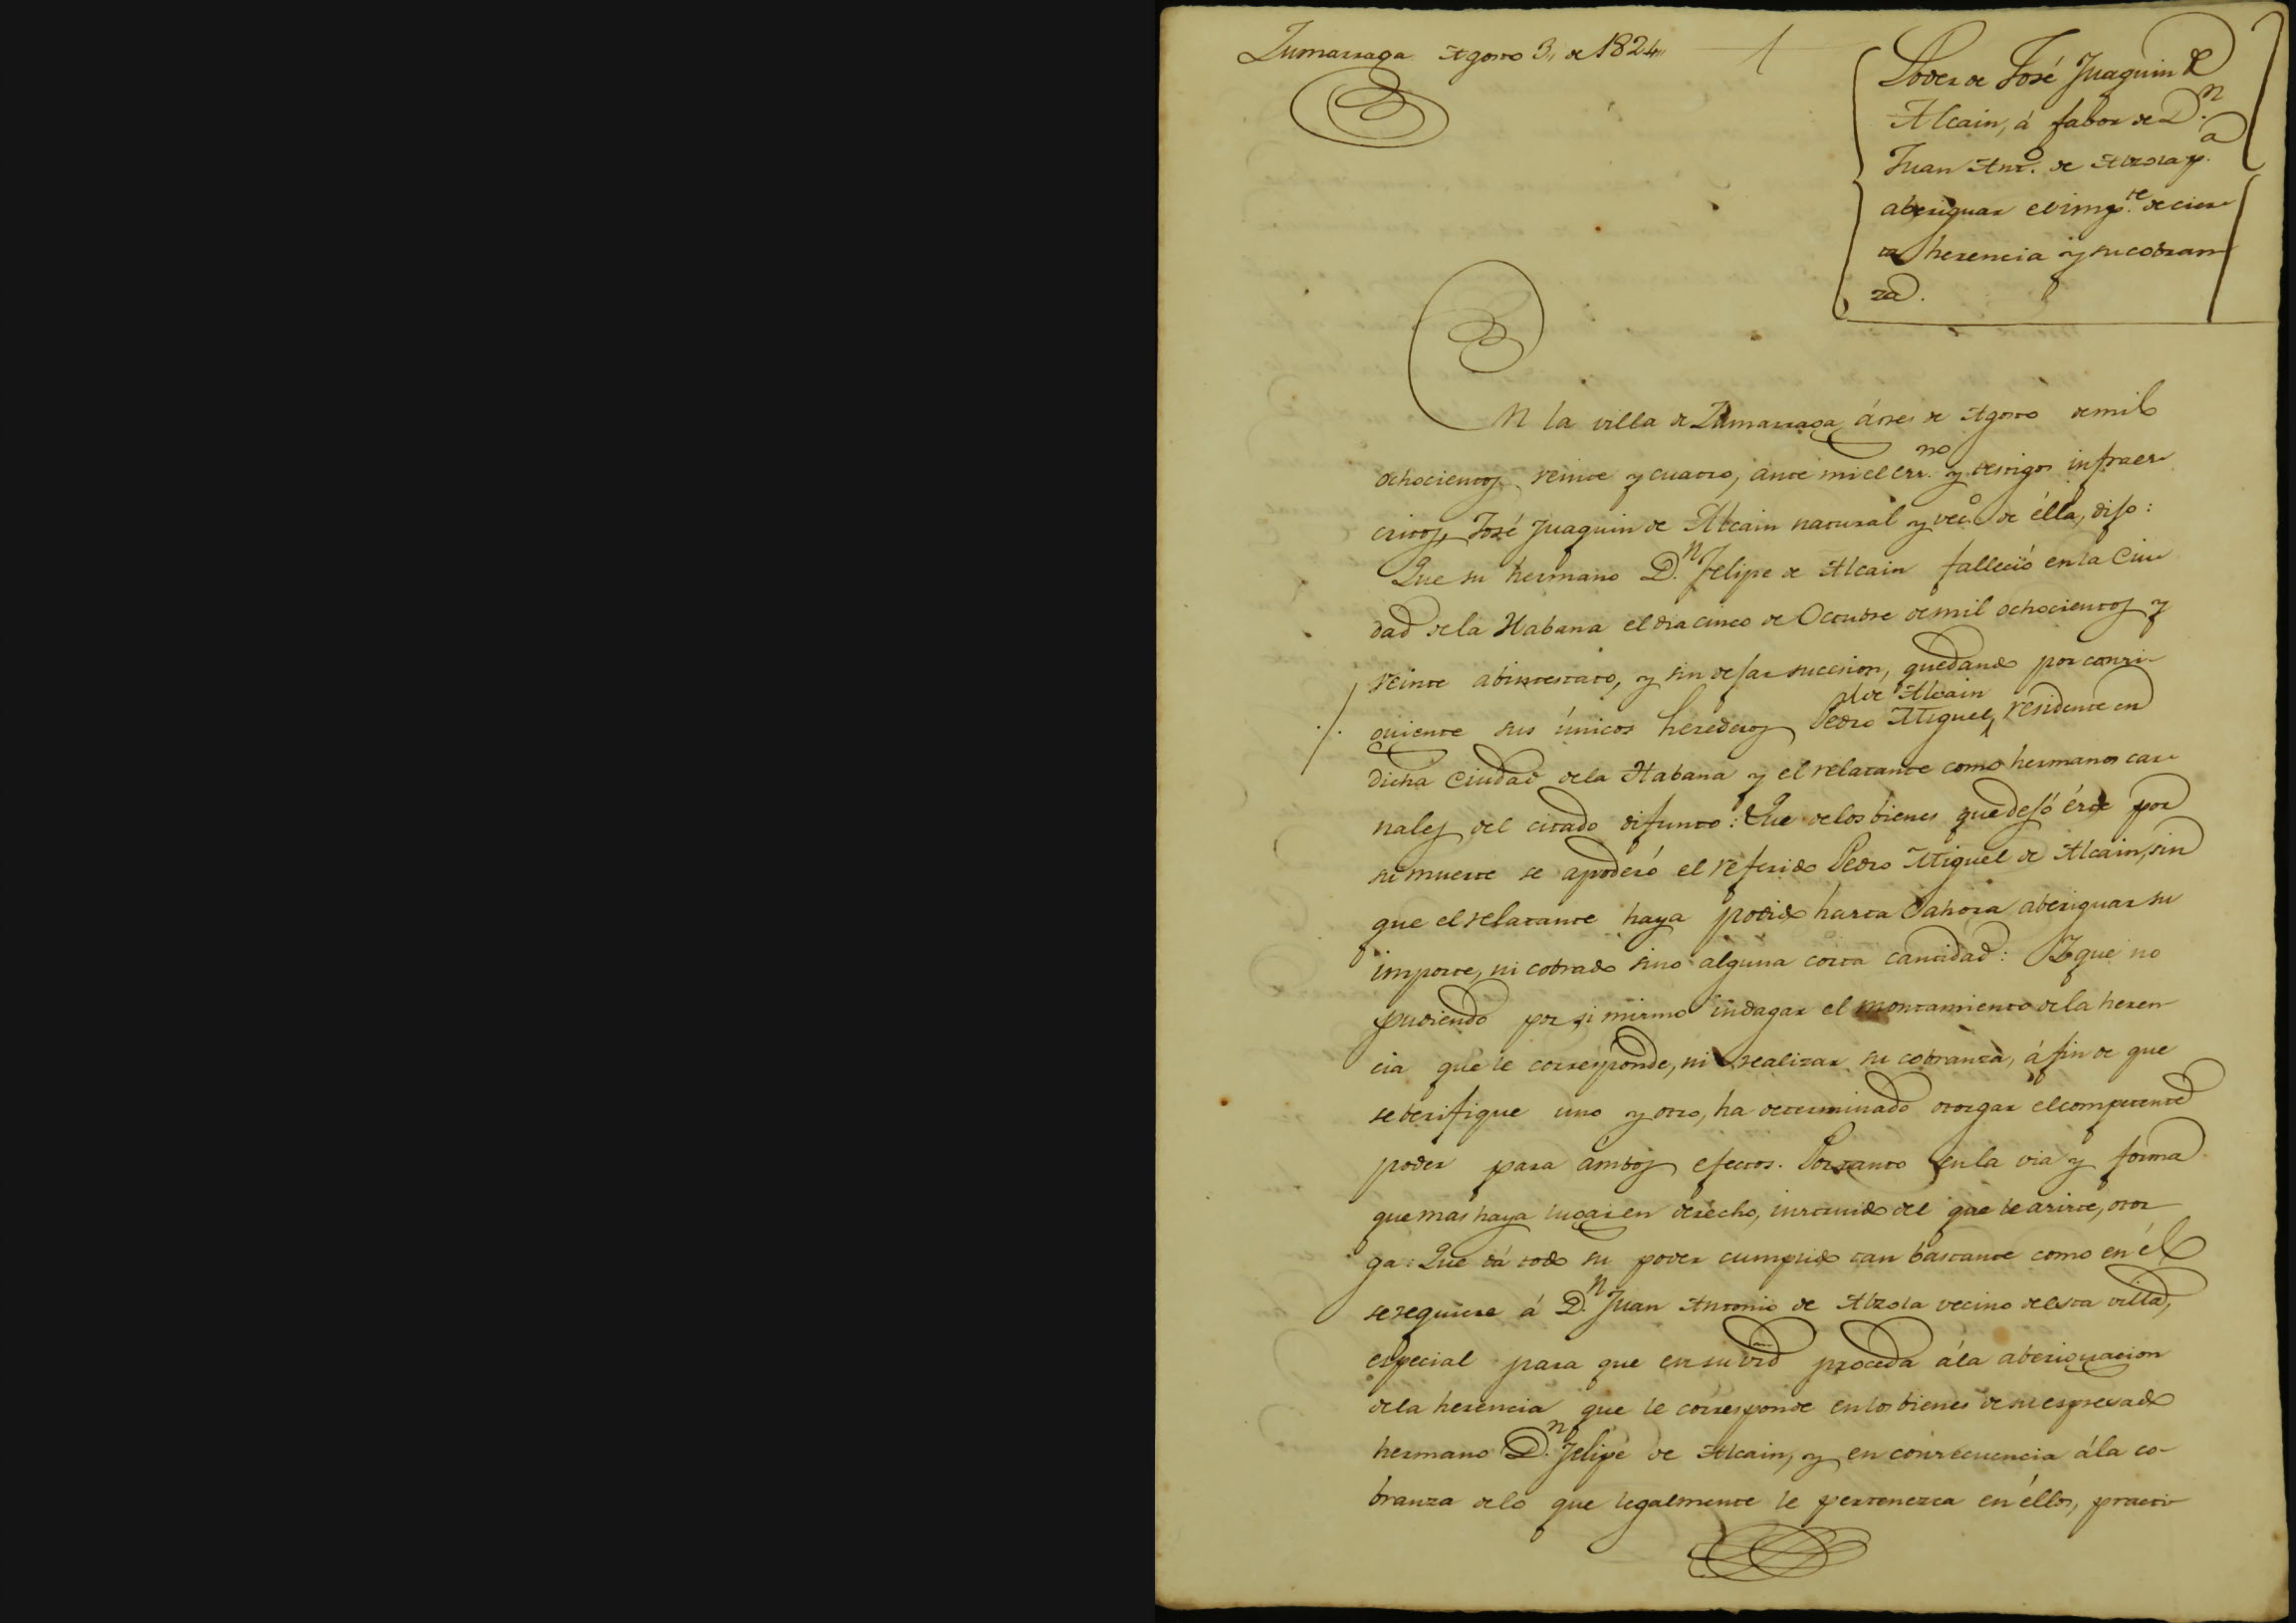 Zumarraga Agosto 3,, de 1824,,
Poder de José Juaquin de
Alcain, á fabor de D.n
Juan Anto. de Alzola p.a
aberiguar el imp.te de cier-
ta herencia y su cobran-
za.
En la villa de Zumarraga á tres de Agosto de mil
ochocientos veinte y cuatro, ante mi el esc.no y testigos infraes-
critos, José Juaquin de Alcain natural y vec.o de élla, dijo:
Que su hermano D.n Felipe de Alcain falleció en la Ciu-
dad de la Habana el dia cinco de Octubre de mil ochocientos y
veinte abintestato, y sin dejar sucesion, quedando por consi-
de Alcain
guiente sus únicos herederos Pedro Miguel residente en
dicha Ciudad de la Habana y el relatante como hermanos car-
nales del citado difunto: Que de los bienes que dejó éste por
su muerte se apoderó el referido Pedro Miguel de Alcain, sin
que el relatante haya podido hasta ahora aberiguar su
importe, ni cobrado sino alguna corta cantidad: Y que no
pudiendo por si mismo indagar el montamiento de la heren-
cia que le corresponde, ni realizar su cobranza, á fin de que
se berifique uno y otro, ha determinado otorgar el competente
poder para ambos efectos. Portanto en la via y forma
que mas haya lugar en derecho, instruido del que le asiste, otor-
ga: Que dá todo su poder cumplido tan bastante como en él
se requiere á D.n Juan Antonio de Alzola vecino de esta villa,
especial para que en su vrd proceda á la aberiguacion
de la herencia que le corresponde en los bienes de su espresado
hermano D.n Felipe de Alcain, y en consecuencia á la co-
branza de lo que legalmente le pertenezca en éllos, practi-